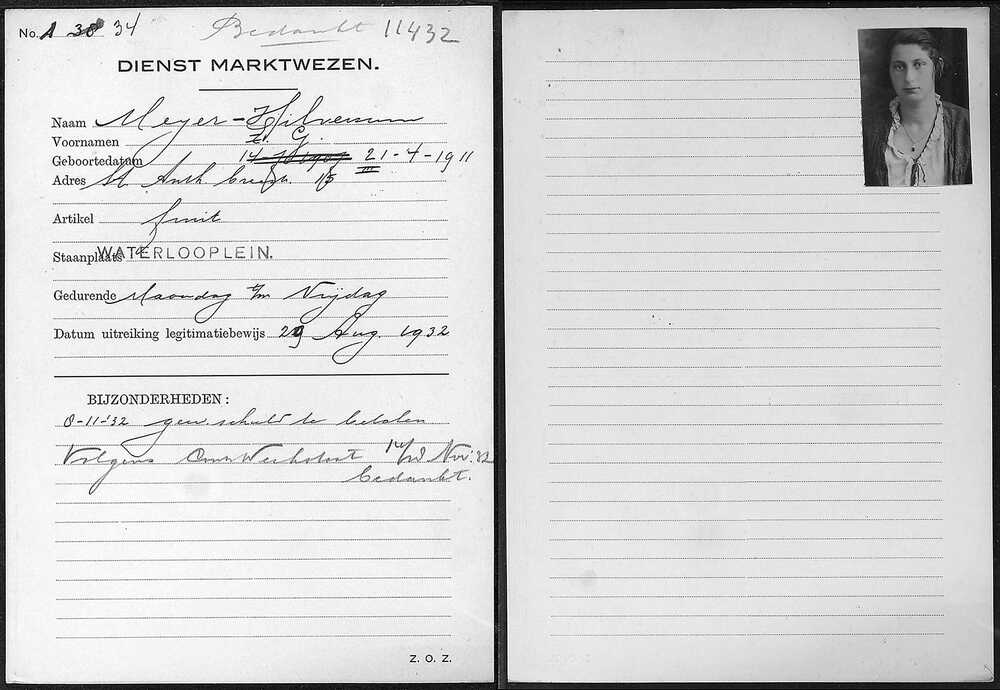 No. A 38 34 Bedankt 11432
DIENST MARKTWEZEN.
Naam Meyer-Hilversum
Voornamen G.
Geboortedatum 21-4-1911
Adres St. Anth. Breestr. 15
III
Artikel fruit
Staanplaats WATERLOOPLEIN.
Gedurende Maandag t/m Vrijdag
Datum uitreiking legitimatiebewijs 29 Aug. 1932
BIJZONDERHEDEN:
8-11-'32 gew. schuld te betalen
Volgens 14/18 Nov. '32
bedankt.
Z. O. Z.